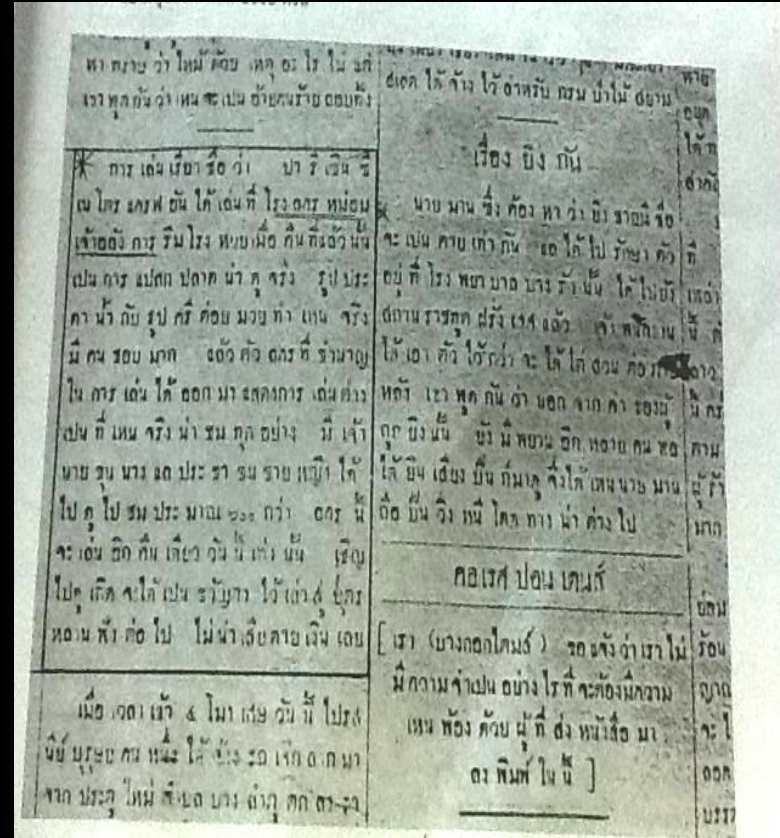 หา ทราบ ว่า ไหม้ ด้วย เหตุ อะ ไร ไม่ แต่
เขา พูด กัน ว่า เหน จะ เปน อ้ายคนร้าย ลอบทิ้ง
การ เล่น เรียก ชื่อ ว่า ปา ริ เซิน ซิ
เน โตร แครฟ อัน ได้ เล่น ที่ โรง ลคร หม่อม
เจ้าอลัง การ ริม โรง หวย เมื่อ คืน ที่ แล้ว นั้น
เปน การ แปลก ปลาด น่า ดู จริง รูป ประ
ดา น้ำ กับ รูป ตรี ต่อย มวย ทำ เหน จริง
มี คน ชอบ มาก แล้ว ตัว ลคร ที่ ชำนาญ
ใน การ เล่น ได้ ออก มา แสดงการ เล่นต่าง
เปน ที่ เหน จริง น่า ชม ทุก อย่าง มี เจ้า
นาย ขุน นาง แล ประ ชา ชน ชาย หญิง ได้
ไป ดู ไป ชม ประ มาณ ๖๐๐ กว่า ลคร นี้
จะ เล่น อีก คืน เดียว วัน นี้ เท่า นั้น เชิญ
ไปดู เถิด จะได้ เปน ขวัญตา ไว้ เล่า สู่ บุตร
หลาน ฟัง ต่อ ไป ไม่ น่า เสีย ดาย เงิน เลย
เมื่อ เวลา เช้า ๔ โมง เศษ วัน นี้ ไปรส
นีย์ บุรุษย คน หนึ่ง ได้ จ้าง รถ เจ๊ก ลาก มา
จาก ประตู ใหม่ ตำบล บาง ลำภู ตก
สเตด ได้ จ้าง ไว้ สำหรับ กรม ป่าไม้ สยาม
เรื่อง ยิง กัน
นาย มาน ซึ่ง ต้อง หา ว่า ยิง ชายมี ชื่อ
จะ เปน ตาย เท่า กัน แล ได้ ไป รักษา ตัว
อยู่ ที่ โรง พยา บาล บาง รัก นั้น ได้ ไปยัง
สถาน ราชทูต ฝรั่ง เศส แล้ว เจ้า พนักงาน
ได้ เอา ตัว ไว้กว่า จะ ได้ ไต่ สวน ต่อ
หลัง เขา พูด กัน ว่า นอก จาก คำ ของผู้
ถูก ยิง นั้น ยัง มี พยาน อีก หลาย คน พอ
ได้ ยิน เสียง ปืน ก็มาดู จึงได้ เหนนาย มาน
ถือ ปืน วิ่ง หนี โดด ทาง น่า ต่าง ไป
คอเรส ปอน เดนส์
[ เรา (บางกอกไตมส์) ขอ แจ้ง ว่า เรา ไม่
มี ความ จำเปน อย่าง ไร ที่ จะต้องมีความ
เหน พ้อง ด้วย ผู้ ที่ ส่ง หนังสือ มา
ลง พิมพ์ ใน นี้ ]